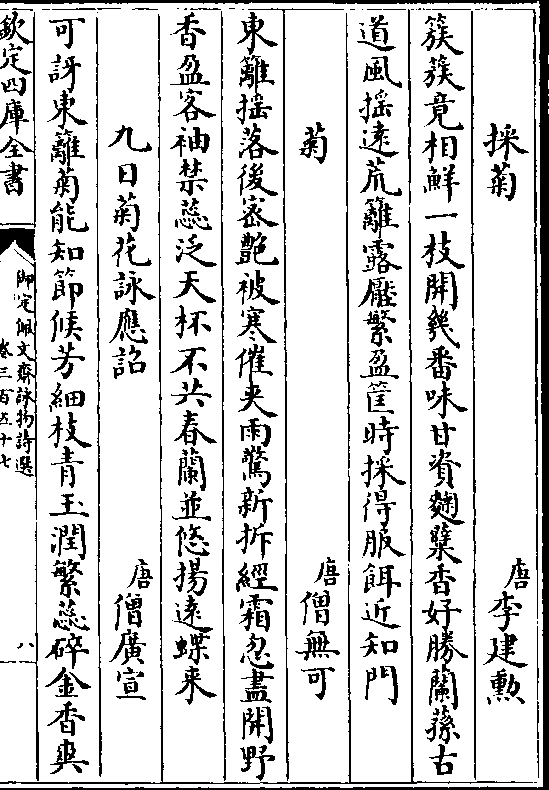 採菊　唐李建勲
簇簇竟相鮮一枝開幾番味甘資麴糵香好勝蘭蓀古
道風揺遠荒籬露壓繁盈筐時採得服餌近知門
菊　唐僧無可
東籬揺落後宻艷被寒催夾雨驚新拆經霜忽盡開野
香盈客袖禁蕊泛天杯不共春蘭並悠揚逺蝶来
九日菊花詠應詔　唐僧廣宣
可訝東籬菊能知節候芳細枝青玉潤繁蕊碎金香爽
欽定四庫全書
御定佩文齋詠物詩選
卷三百五十七
八